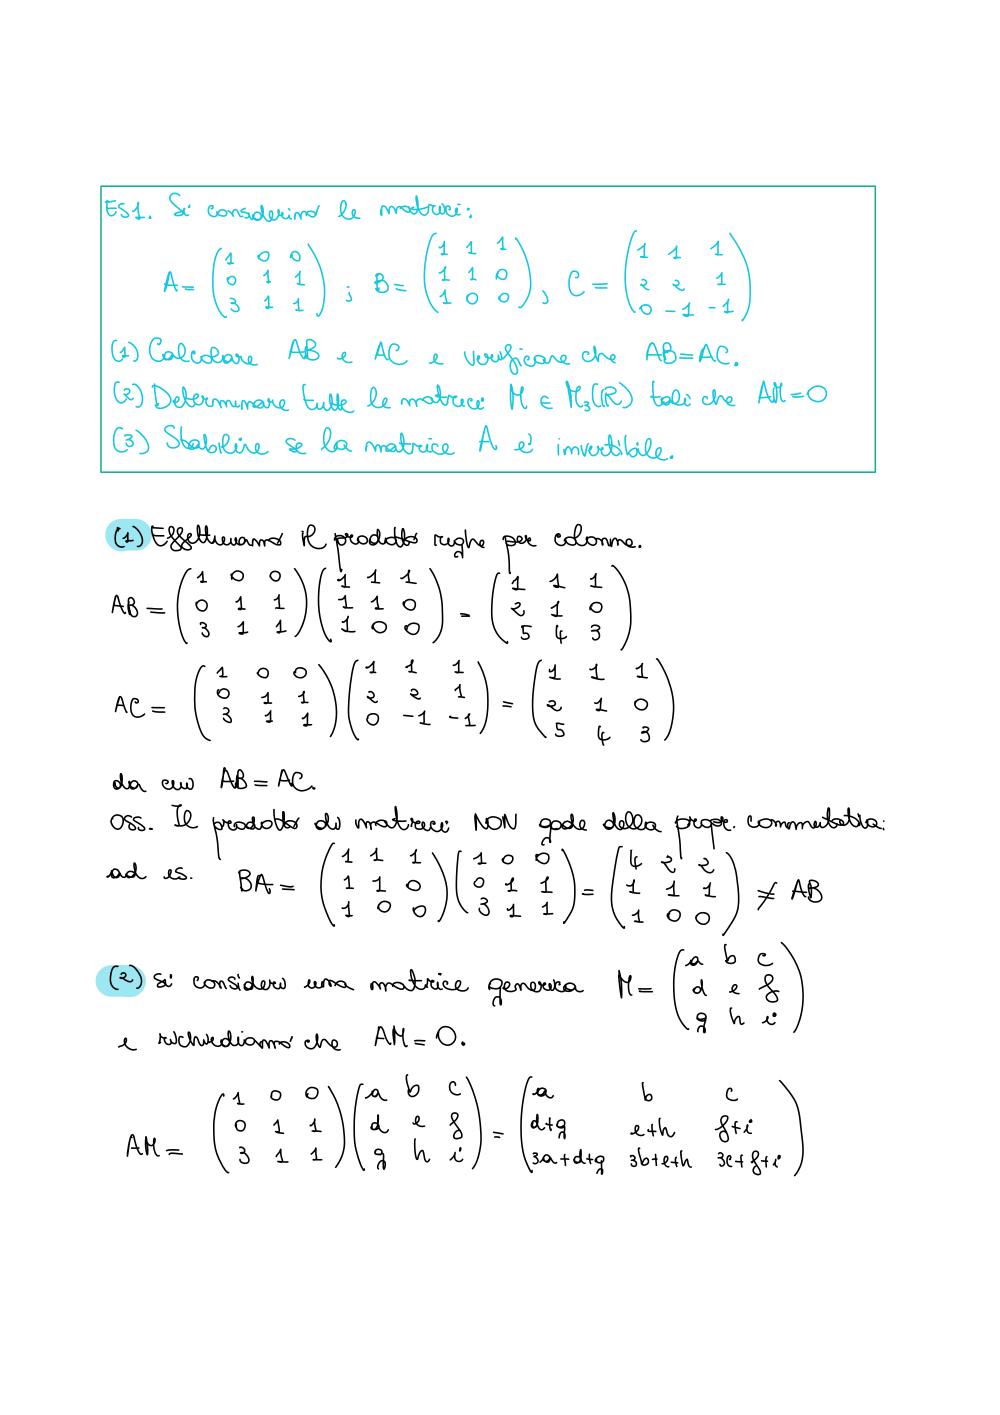 ES1. Si considerino le matrici:
A = (1 0 0; 0 1 1; 3 1 1) ; B = (1 1 1; 1 1 0; 1 0 0), C = (1 1 1; 2 2 1; 0 -1 -1)
(1) Calcolare AB e AC e verificare che AB=AC.
(2) Determinare tutte le matrici M ∈ M₃(R) tali che AM=O
(3) Stabilire se la matrice A e' invertibile.
(1) Effettuiamo il prodotto righe per colonne.
AB = (1 0 0; 0 1 1; 3 1 1) (1 1 1; 1 1 0; 1 0 0) = (1 1 1; 2 1 0; 5 4 3)
AC = (1 0 0; 0 1 1; 3 1 1) (1 1 1; 2 2 1; 0 -1 -1) = (1 1 1; 2 1 0; 5 4 3)
da cui AB = AC.
Oss. Il prodotto di matrici NON gode della propr. commutativa:
ad es. BA = (1 1 1; 1 1 0; 1 0 0) (1 0 0; 0 1 1; 3 1 1) = (4 2 2; 1 1 1; 1 0 0) ≠ AB
(2) Si consideri una matrice generica M = (a b c; d e f; g h i)
e richiediamo che AM = O.
AM = (1 0 0; 0 1 1; 3 1 1) (a b c; d e f; g h i) = (a b c; d+g e+h f+i; 3a+d+g 3b+e+h 3c+f+i)